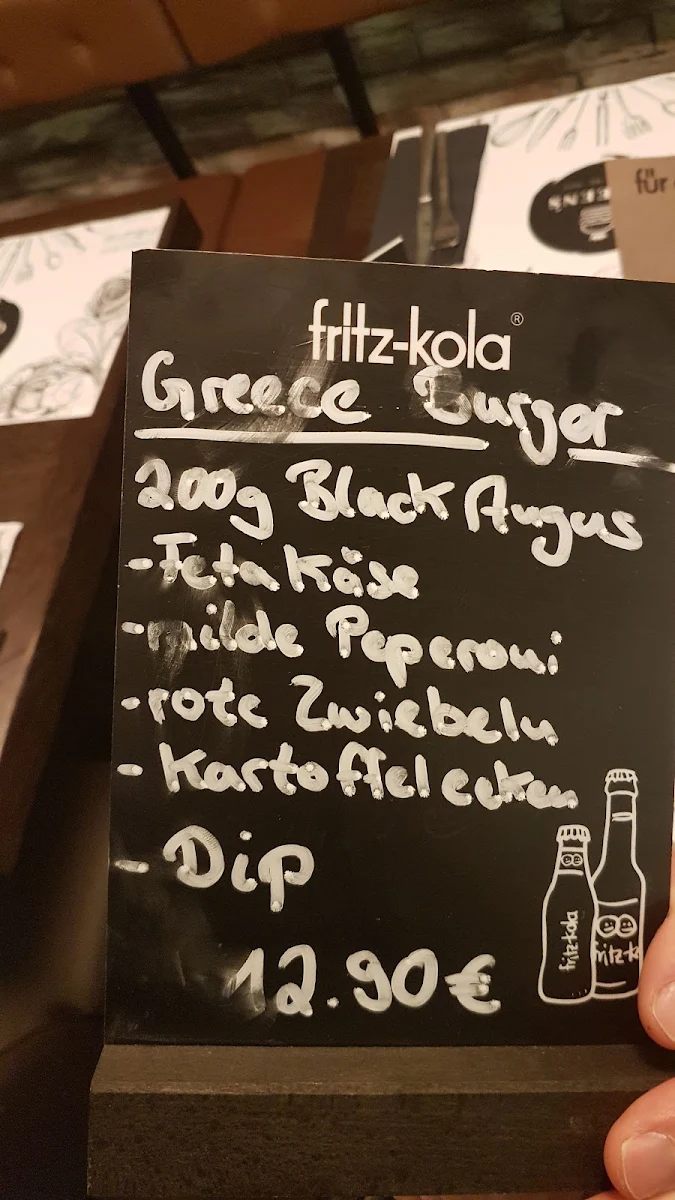 für
fritz-kola®
Greece Burger
200g Black Angus
- Feta Käse
- milde Peperoni
- rote Zwiebeln
- Kartoffelecken
- Dip
12.90€
fritz-kola